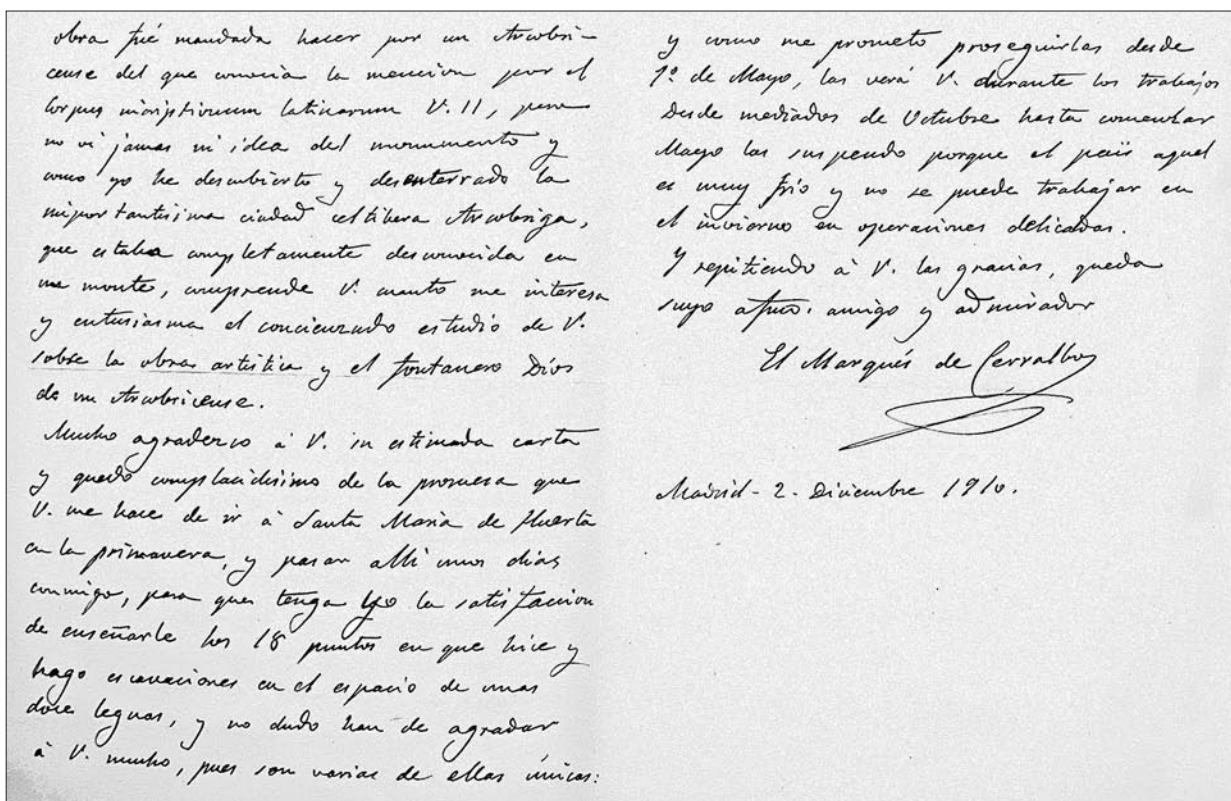 obra fué mandada hacer por un Arcobri-
cense del que conocia la mencion por el
Corpus inscriptionum latinarum V. II, pero
no vi jamas ni idea del monumento y
como yo he descubierto y desenterrado la
importantisima ciudad celtibera Arcobriga,
que estaba completamente desconocida en
un monte, comprende V. cuanto me interesa
y entusiasma el concienzudo estudio de V.
sobre la obra artistica y el fontanero Dios
de un Arcobricense.
Mucho agradezco à V. su estimada carta
y quedo complacidisimo de la promesa que
V. me hace de ir à Santa Maria de Huerta
en la primavera, y pasar alli unos dias
conmigo, para que tenga yo la satisfaccion
de enseñarle los 18 puntos en que hice y
hago escavaciones en el espacio de unas
doce leguas, y no dudo han de agradar
à V. mucho, pues son varias de ellas únicas:
y como me prometo proseguirlas desde
1º de Mayo, las verá V. durante los trabajos
Desde mediados de Octubre hasta comenzar
Mayo las suspendo porque el país aquel
es muy frio y no se puede trabajar en
el invierno en operaciones delicadas.
Y repitiendo à V. las gracias, queda
suyo afmo. amigo y admirador
El Marqués de Cerralbo
Madrid - 2 - Diciembre 1910.